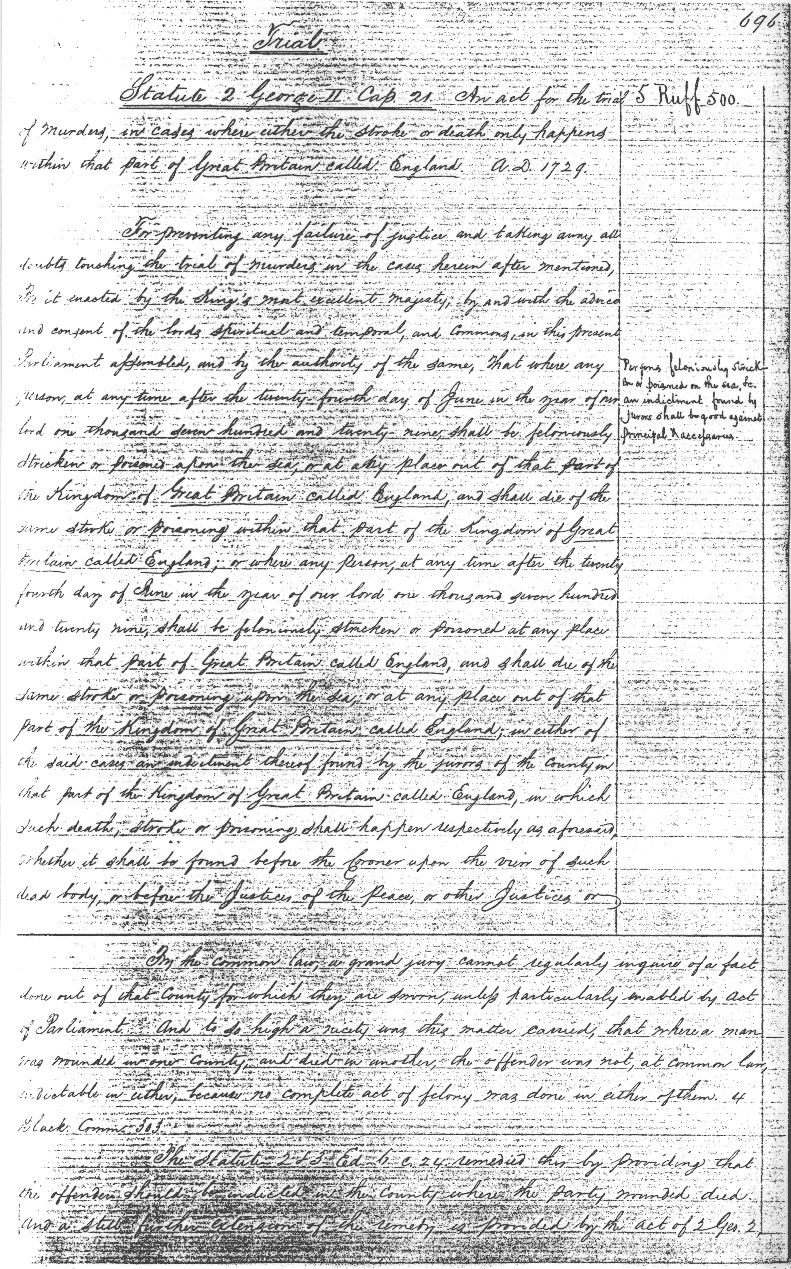 696
Trial
Statute 2 George II Cap. 21. An act for the trial
5 Ruff 500.
of murders, in cases where either the stroke or death only happens
within that part of Great Britain called England. A.D. 1729.
For preventing any failure of justice and taking away all
doubts touching the trial of murders in the cases herein after mentioned,
Be it enacted by the King's most excellent majesty, by and with the advice
and consent of the lords spiritual and temporal, and Commons, in this present
Parliament assembled, and by the authority of the same, That where any
person, at any time after the twenty-fourth day of June in the year of our
lord one thousand seven hundred and twenty-nine, shall be feloniously
stricken or poisoned upon the sea, or at any place out of that part of
the Kingdom of Great Britain called England, and shall die of the
same stroke or poisoning within that part of the Kingdom of Great
Britain called England; or where any person, at any time after the twenty
fourth day of June in the year of our lord one thousand seven hundred
and twenty nine, shall be feloniously stricken or poisoned at any place
within that part of Great Britain called England, and shall die of the
same stroke or poisoning upon the sea, or at any place out of that
part of the Kingdom of Great Britain called England; in either of
the said cases an indictment thereof found by the jurors of the County in
that part of the Kingdom of Great Britain called England, in which
such death, stroke or poisoning shall happen respectively as aforesaid,
whether it shall be found before the Coroner upon the view of such
dead body, or before the Justices of the Peace, or other Justices or
Persons feloniously strick-
en or poisoned on the sea, &c.
an indictment found by
jurors shall be good against
principal & accessaries.
By the common law, a grand jury cannot regularly inquire of a fact
done out of that County for which they are sworn, unless particularly enabled by act
of Parliament. And to so high a nicety was this matter carried, that where a man
was wounded in one County, and died in another, the offender was not, at common law,
indictable in either, because no complete act of felony was done in either of them. 4
Black. Comm. 303.
The Statute 2 & 3 Ed. 6. c. 24 remedied this by providing that
the offender should be indicted in the County where the party wounded died.
And a still further extension of the remedy is provided by the act of 2 Geo. 2,